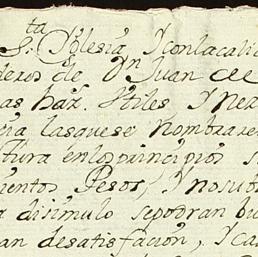 S.ta Yglesia Yconlacali
deros de Dn Juan de
as haz. Utiles Y Nez
ria lasquese Nombrare
tura enlosprincipios s
ientos Pesos, Ynosub
a disimulo sepodran bu
an desatisfacion, Yca